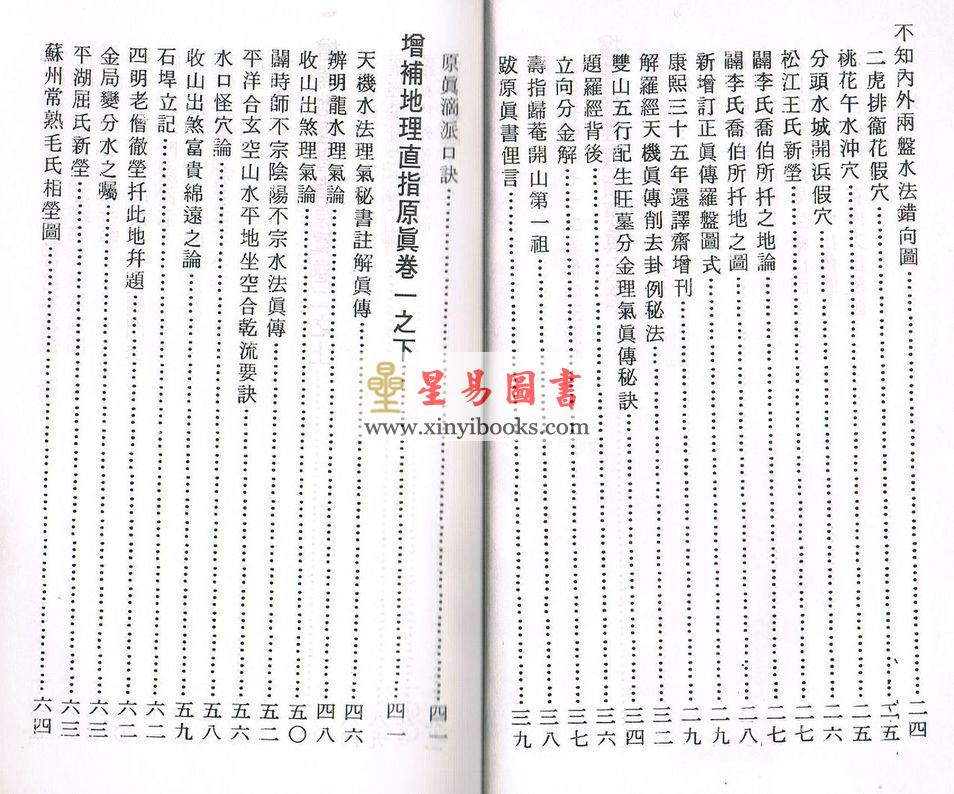 不知內外兩盤水法錯向圖……二四
二虎排衙花假穴……二五
桃花午水沖穴……二五
分頭水城開浜假穴……二六
松江王氏新塋……二七
闢李氏喬伯所扦之地論……二七
闢李氏喬伯所扦地之圖……二八
新增訂正眞傳羅盤圖式……二九
康熙三十五年還譯齋增刊……二九
解羅經天機眞傳削去卦例秘法……三二
雙山五行配生旺墓分金理氣眞傳秘訣……三四
題羅經背後……三六
立向分金解……三七
壽指歸菴開山第一祖……三八
跋原眞書俚言……三九
原眞滴派口訣……四一
增補地理直指原眞卷一之下……四一
天機水法理氣秘書註解眞傳……四六
辨明龍水理氣論……四八
收山出煞理氣論……五〇
闢時師不宗陰陽不宗水法眞傳……五二
平洋合玄空山水平地坐空合乾流要訣……五六
水口怪穴論……五八
收山出煞富貴綿遠之論……五九
石埠立記……六二
四明老僧徹瑩扦此地幷題……六二
金局變分水之囑……六三
平湖屈氏新塋……六三
蘇州常熟毛氏相塋圖……六四
星易圖書
www.xinyibooks.com